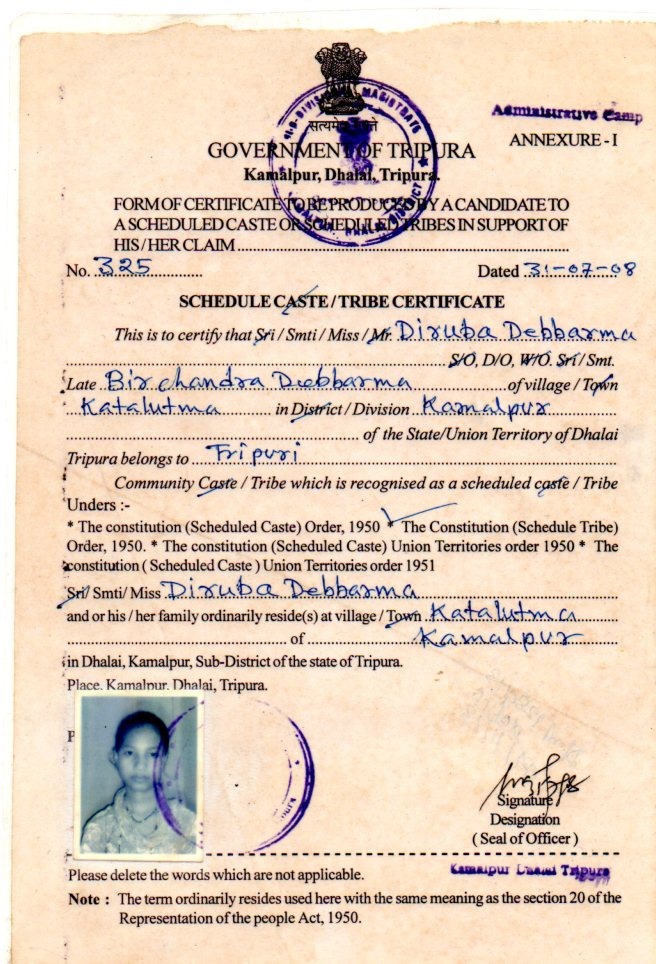 सत्यमेव जयते
SUB-DIVISIONAL MAGISTRATE
KAMALPUR, DHALAI DISTRICT
Administrative Camp
ANNEXURE - I
GOVERNMENT OF TRIPURA
Kamalpur, Dhalai, Tripura.
FORM OF CERTIFICATE TO BE PRODUCED BY A CANDIDATE TO
A SCHEDULED CASTE OR SCHEDULED TRIBES IN SUPPORT OF
HIS / HER CLAIM
No. 325 Dated 31-07-08
SCHEDULE CASTE / TRIBE CERTIFICATE
This is to certify that Sri / Smti / Miss / Mr. Diruba Debbarma
S/O, D/O, W/O. Sri / Smt.
Late Bir chandra Debbarma of village / Town
Katalutma in District / Division Kamalpur
of the State/Union Territory of Dhalai
Tripura belongs to Tripuri
Community Caste / Tribe which is recognised as a scheduled caste / Tribe
Unders :-
* The constitution (Scheduled Caste) Order, 1950 * The Constitution (Schedule Tribe)
Order, 1950. * The constitution (Scheduled Caste) Union Territories order 1950 * The
constitution ( Scheduled Caste ) Union Territories order 1951
Sri/ Smti/ Miss Diruba Debbarma
and or his / her family ordinarily reside(s) at village / Town Katalutma
of Kamalpur
in Dhalai, Kamalpur, Sub-District of the state of Tripura.
Place. Kamalpur, Dhalai, Tripura.
Signature
Designation
( Seal of Officer )
Kamalpur Dhalai Tripura
Please delete the words which are not applicable.
Note : The term ordinarily resides used here with the same meaning as the section 20 of the
Representation of the people Act, 1950.